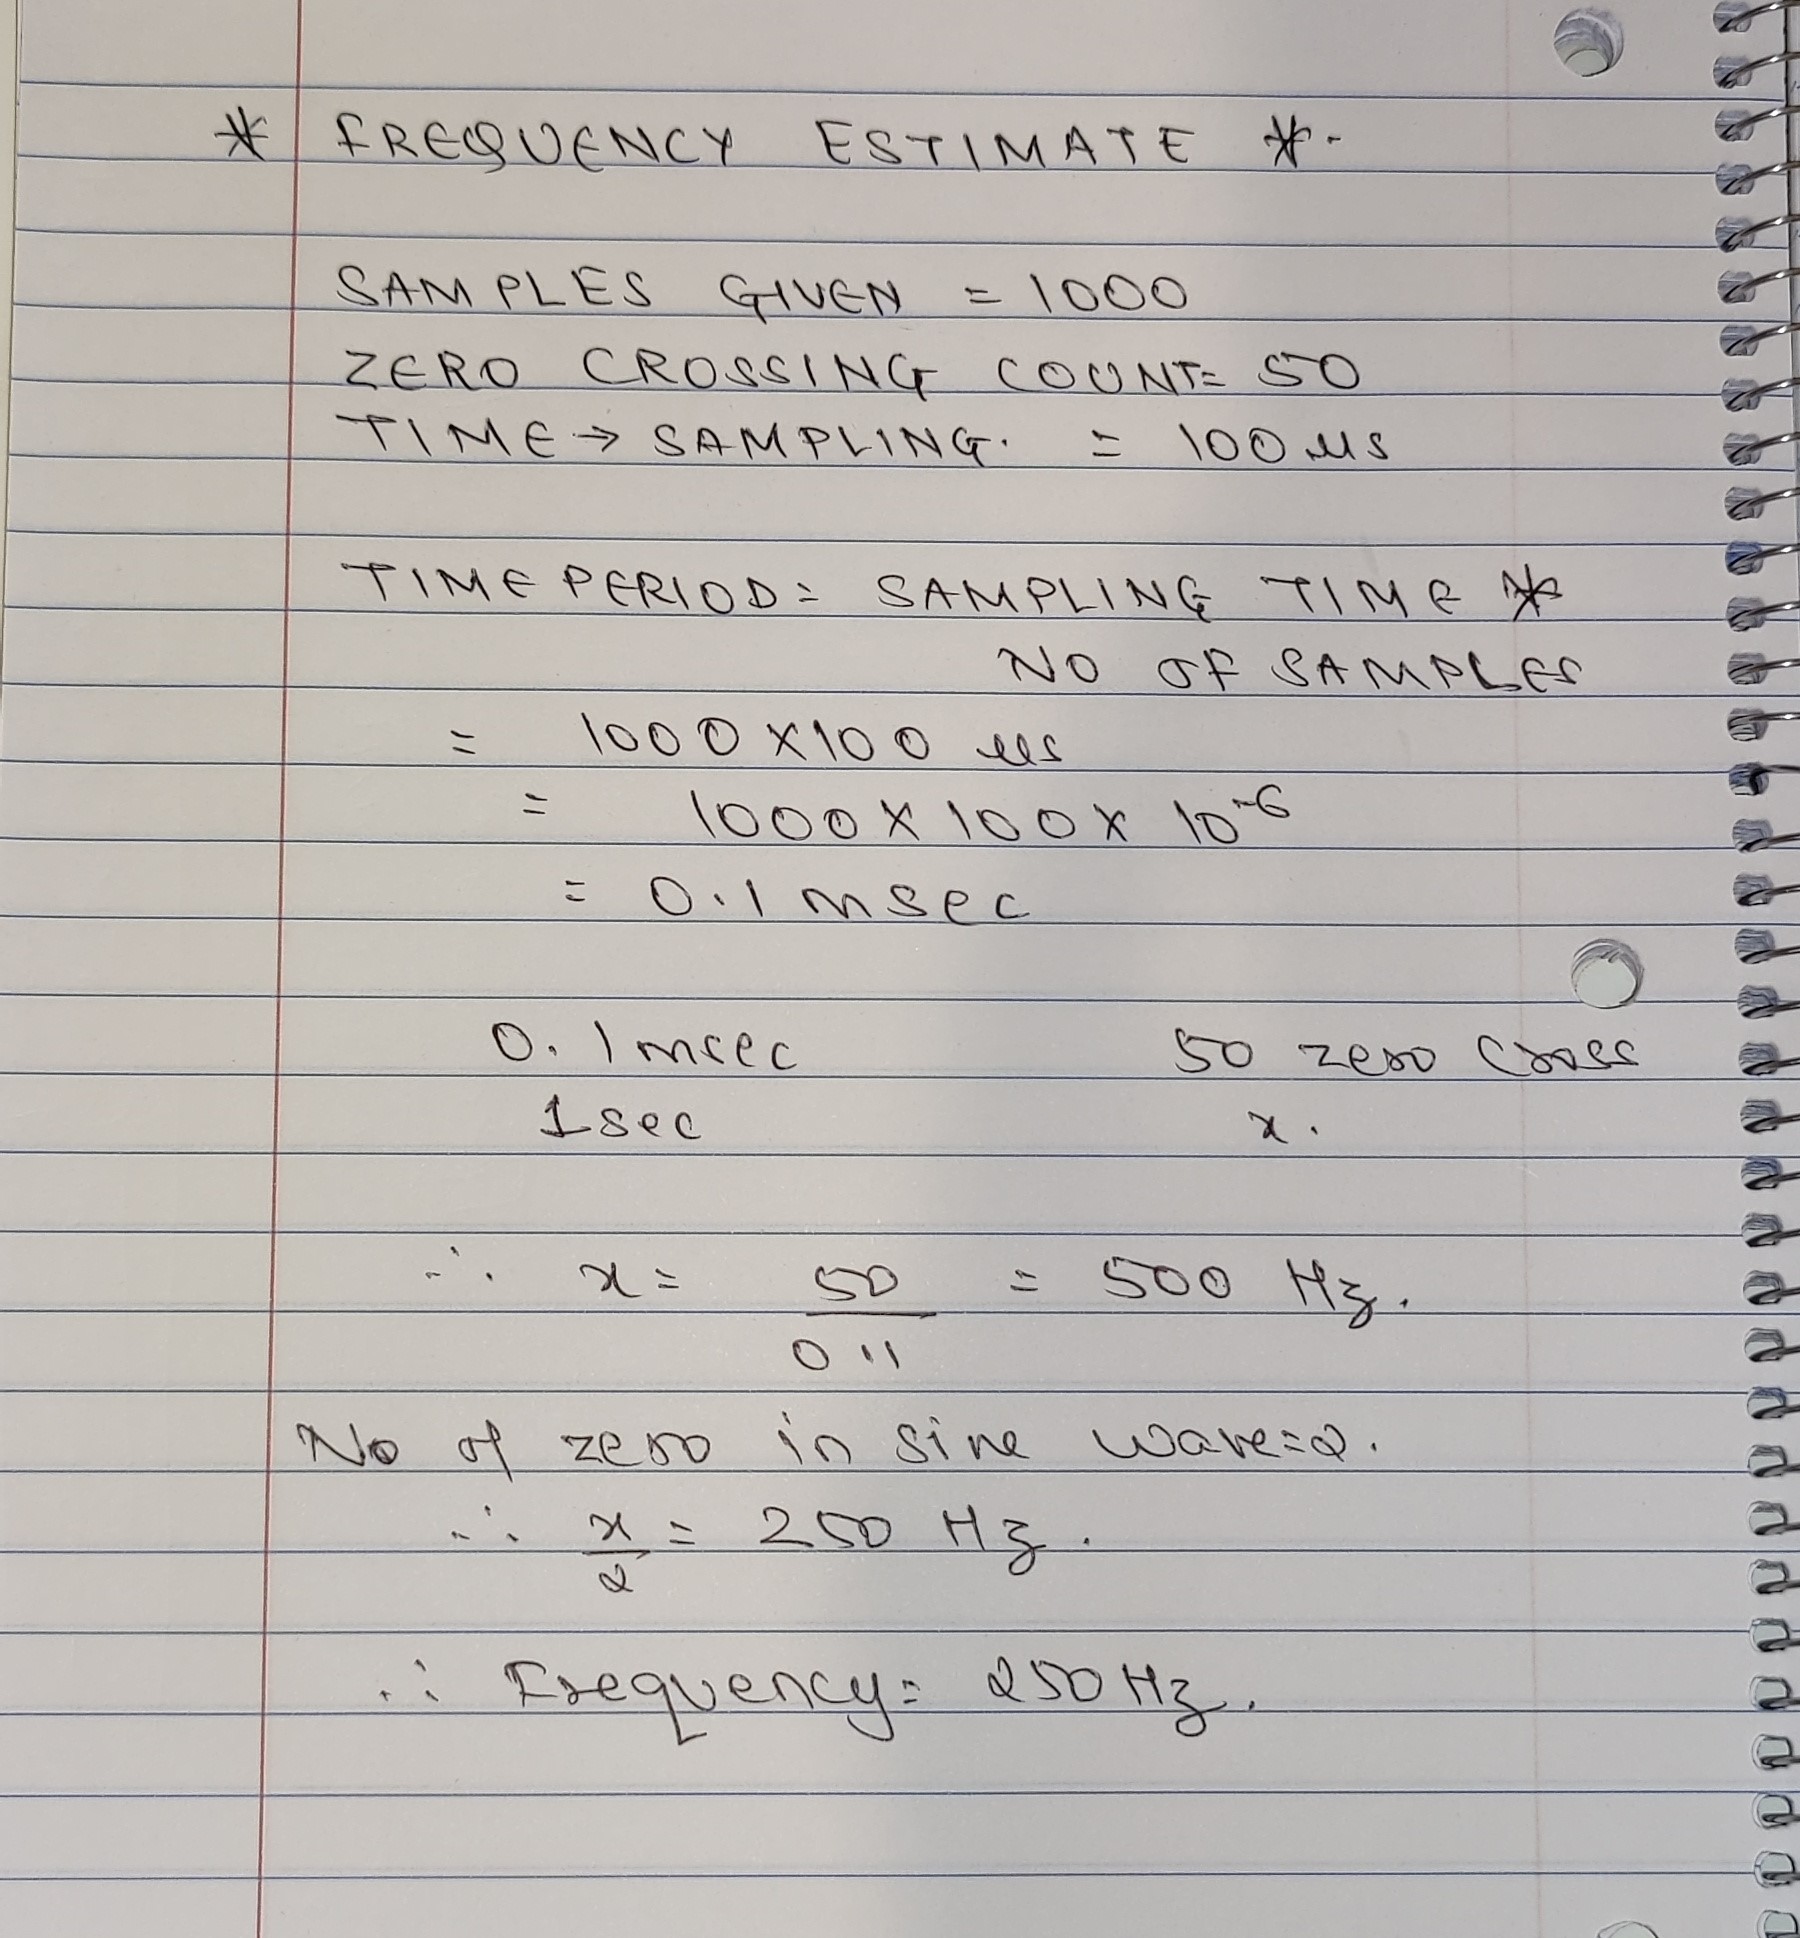 * FREQUENCY ESTIMATE *.
SAMPLES GIVEN = 1000
ZERO CROSSING COUNT= 50
TIME → SAMPLING. = 100 µs
TIME PERIOD = SAMPLING TIME *
NO OF SAMPLES
= 1000 x 100 µs
= 1000 x 100 x 10⁻⁶
= 0.1 msec
0.1 msec 50 zero cross
1 sec x.
∴ x = 50/0.1 = 500 Hz.
No of zero in sine wave=2.
∴ x/2 = 250 Hz.
∴ Frequency= 250 Hz.